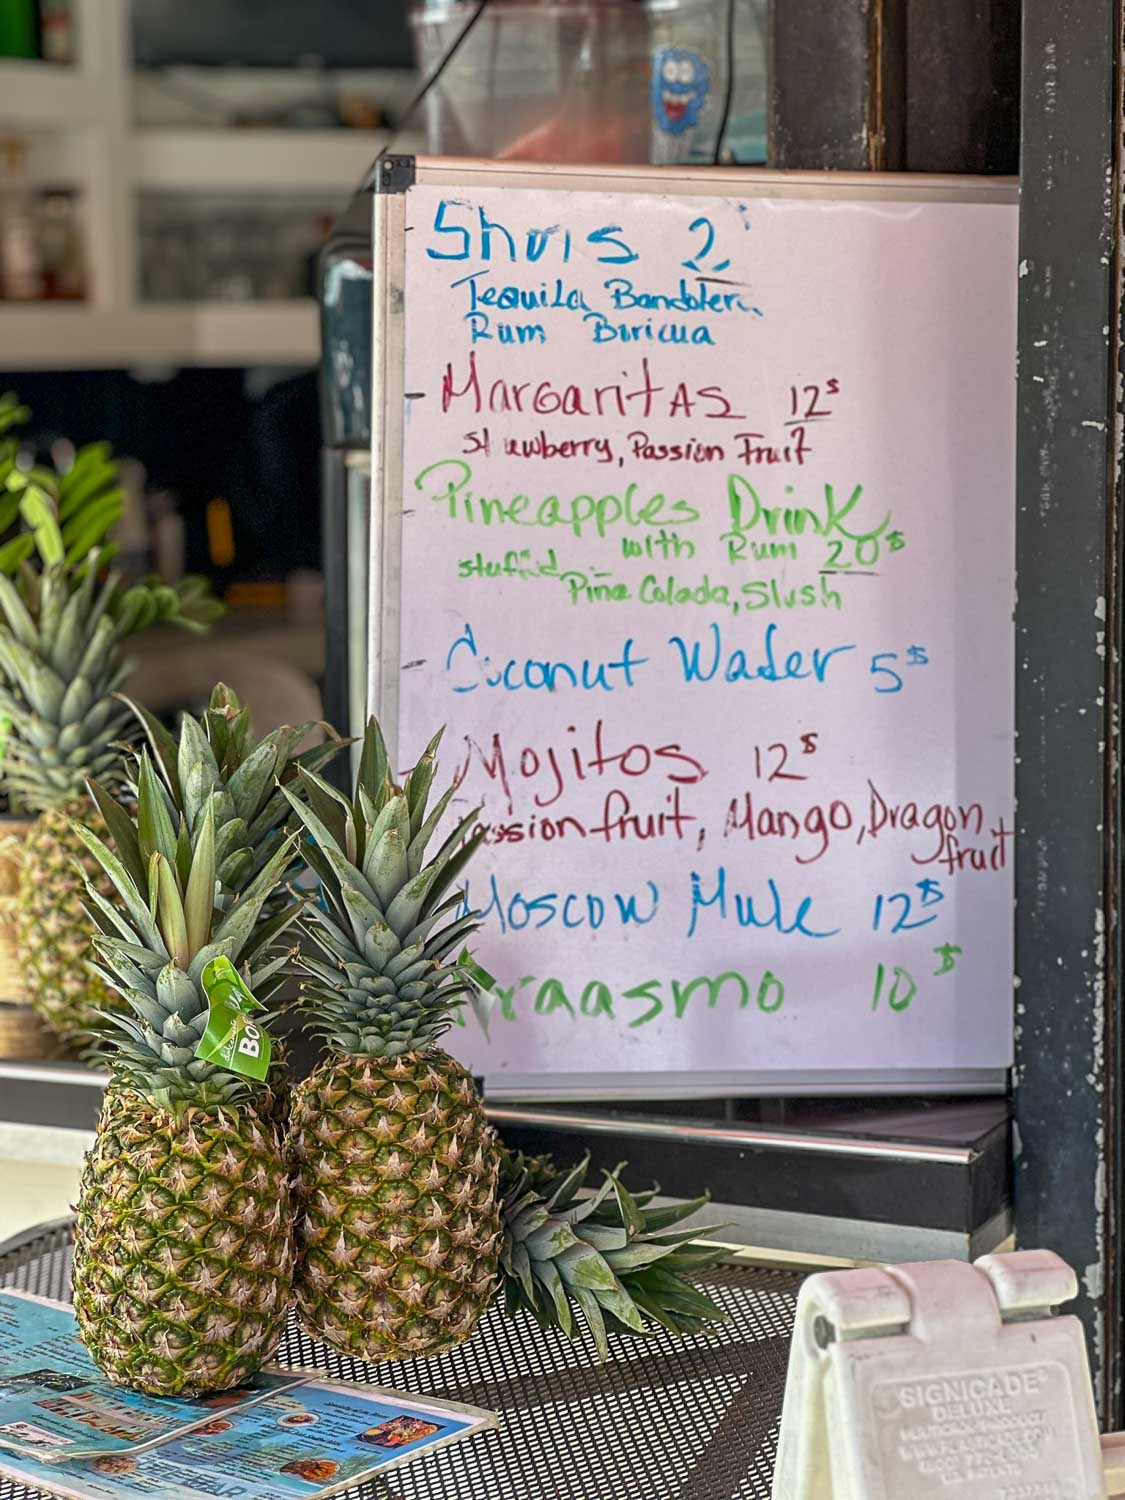 Shots 2
Tequila Bandolera
Rum Boricua
- Margaritas 12$
Strawberry, Passion Fruit
- Pineapples Drink
with Rum 20$
stuffed Piña Colada, Slush
- Coconut Water 5$
- Mojitos 12$
Passion fruit, Mango, Dragon fruit
Moscow Mule 12$
10$
SIGNICADE
DELUXE